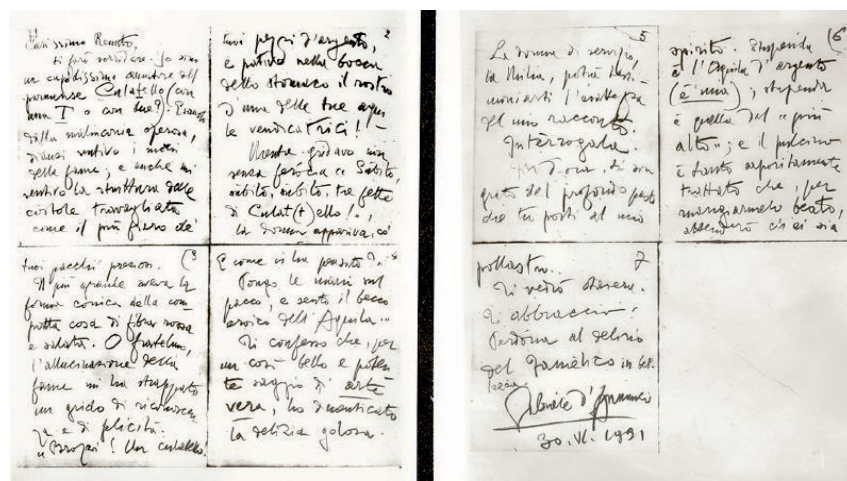 Carissimo Renato,
ti farò sorridere. Io sono
un cupidissimo amatore del
parmense Culatello (con
una T o con due?). Escendo
dalla malinconia operosa,
dianzi sentivo i morsi
della fame; e anche mi
sentivo la struttura delle
costole travagliata
come il più fiero de'
2
tuoi pezzi d'argento,
e pativo nella bocca
dello stomaco il rostro
d'una delle tue aqui
le vendicatrici! -
Mentre gridavo non
senza ferocia "Sùbito,
sùbito, sùbito, tre fette
di Culat(t)ello!",
la donna appariva, co'
(3
tuoi pacchi preziosi.
Il più grande aveva la
forma conica della com
patta cosa di fibra rossa
e salata. O fratellino,
l'allucinazione della
fame mi ha strappato
un grido di riconoscen
za e di felicità.
"Brozzi! Un culatello.
E come ci ha pensato?"
Pongo le mani sul
pacco, e sento il becco
eroico dell'Aquila...
Ti confesso che, per
un così bello e poten
te saggio di arte
vera, ho dimenticato
la delizia golosa.
5
La donna di servigio,
la Milia, potrà testi-
moniarti l'esattezza
del mio racconto.
Interrogala.
ti son
grato del profondo pasto
che tu porti al mio
(6
spirito. Stupenda
è l'Aquila d'argento
(è una); stupenda
è quella del "più
alto"; e il pulcino
è tanto saporitamente
trattato che, per
mangiarmelo beato,
attenderò ch'ei sia
7
pollastro.
Ti vedrò stasera.
Ti abbraccio.
Perdona al delirio
del famelico in bel.
lezza.
Gabriele d'Annunzio
30.VI.1931